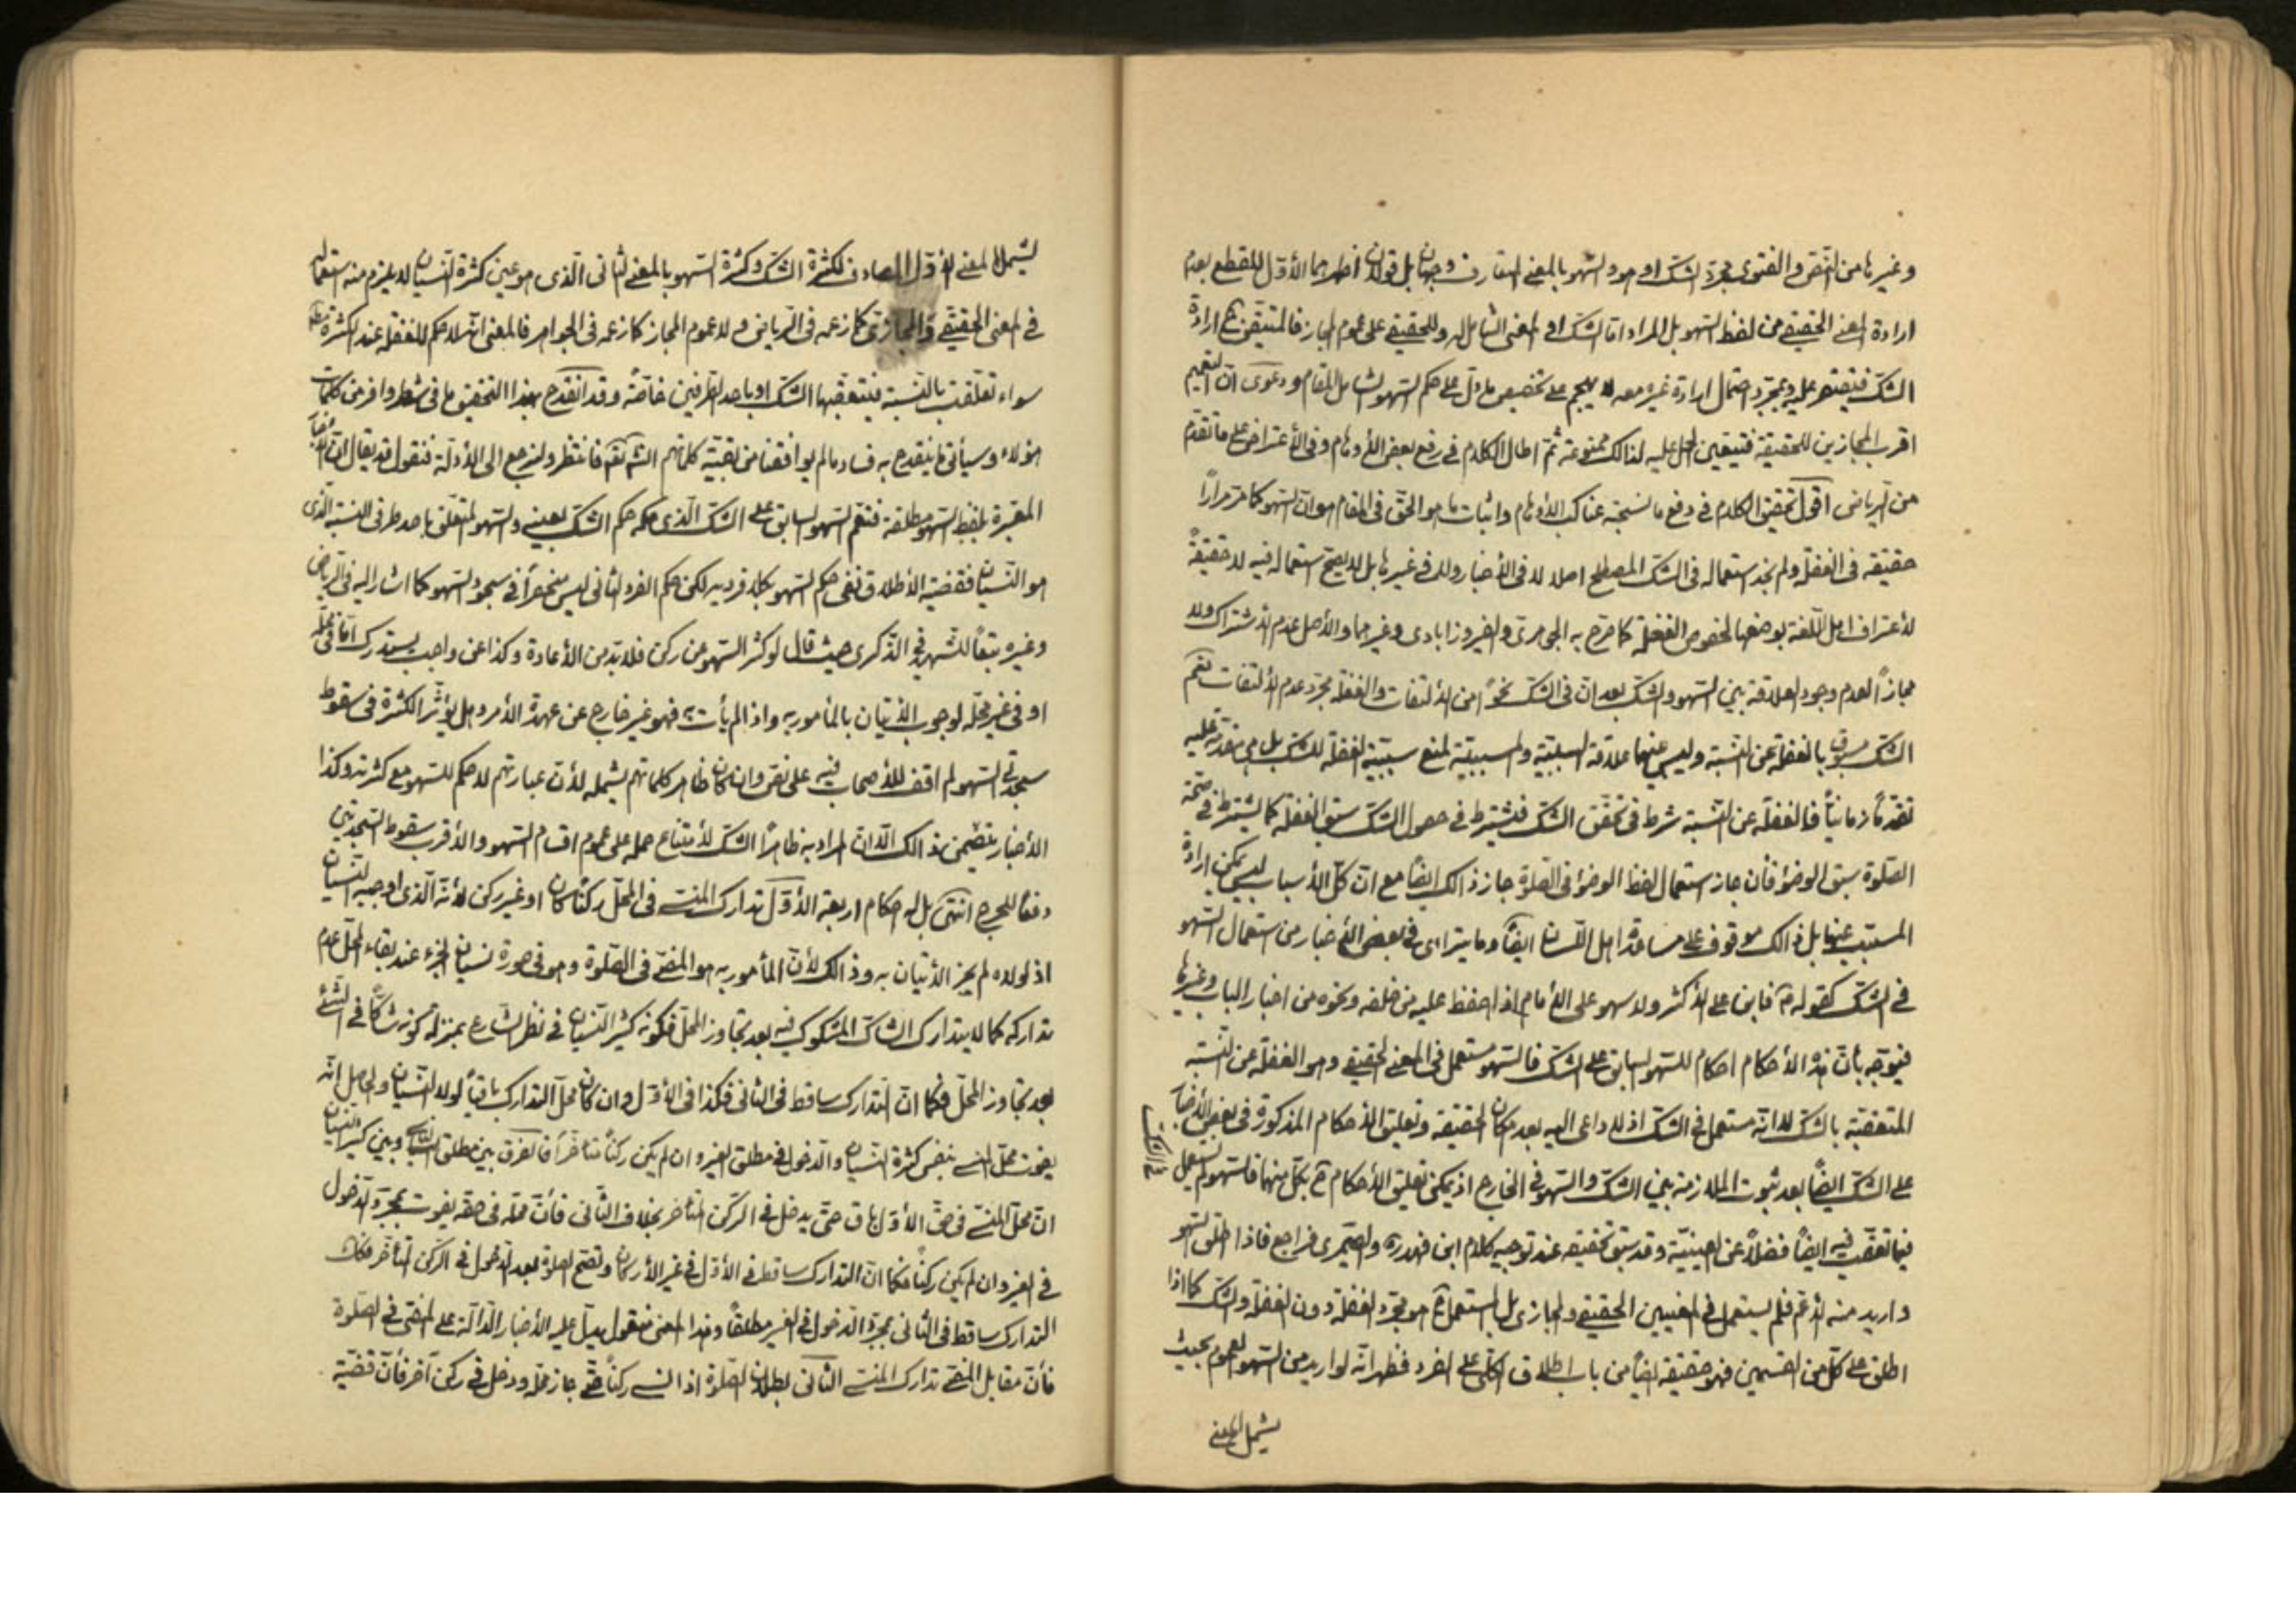 وغيرها من النقص والفتوى مجرد الشك او هو والسهو بالمعنى المتعارف وجهان بل قولان اظهرهما الأول للقطع بعدم
ارادة المعنى الحقيقي من لفظ السهو بل المراد اما الشك او المعنى الشامل له وللحقيقي على عموم المجاز فالمتيقن ح ارادة
الشك فيقتصر عليه وبمجرد احتمال ارادة غيره معه لا يهجم على تخصيص ما دل على حكم السهو الشامل للمقام ودعوى ان التعميم
اقرب المجازين للحقيقة فتيعين الحمل عليه لذلك ممنوعة ثم اطال الكلام في رفع بعض الأوهام وفي الأعتراض على ما تقدم
من الرياض اقول تحقيق الكلام في دفع ما نسجته عناكب الأوهام واثبات ما هو الحق في المقام هو ان السهو كما مر مرارًا
حقيقة في الغفلة ولم نجد استعماله في الشك المصطلح اصلا لا في الأخبار ولا في غيرها بل لا يصح استعماله فيه لا حقيقةً
لأعتراف اهل اللغة بوضعها لخصوص الغفلة كما صرح به الجوهري والفيروزابادي وغيرهما والأصل عدم الأشتراك ولا
مجازًا لعدم وجود العلاقة بين السهو والشك بعد ان في الشك نحوًا من الألتفات والغفلة مجرد عدم الألتفات نعم
الشك مسبوق بالغفلة عن النسبة وليس عنهما علاقة السببية والمسببية لمنع سببية الغفلة للشك بل هي متقدمة عليه
تقدمًا زمانيًا فالغفلة عن النسبة شرط في تحقق الشك فيشترط في حصول الشك سبق الغفلة كما يشترط في صحة
الصلوة سبق الوضوء فأن جاز استعمال لفظ الوضوء في الصلوة جاز ذالك ايضًا مع ان كل الأسباب ليس يمكن ارادة
المسبب عنها بل ذالك موقوف على مساعدة اهل اللسان ايضًا وما يتراءى في بعض الأخبار من استعمال السهو
في الشك كقوله فابن على الأكثر ولا سهو على الأمام اذا حفظ عليه من خلفه ونحوه من اخبار الباب وغيرها
فيوجه بأن هذه الأحكام احكام للسهو السابق على الشك فالسهو مستعمل في المعنى الحقيقي وهو الغفلة عن النسبة
المتعقبة بالشك لا انه مستعمل في الشك اذ لا داعي اليه بعد مكان الحقيقة وتعليق الأحكام المذكورة في بعض الأخبار
على الشك ايضًا بعد ثبوت الملازمة بين الشك والسهو في الخارج اذ يمكن تعليق الأحكام ح بكل منهما فالسهو لم يستعمل
فيما تعقب فيه ايضًا فضلًا عن العينية وقد سبق تحقيقه عند توجيه كلام ابن فهد ره والصيمري فراجع فاذا اطلق السهو
واريد منه الأعم فلم يستعمل في المعنيين الحقيقي والمجازي بل المستعمل ح هو مجرد الغفلة دون الغفلة والشك كما اذا
اطلق على كل من القسمين فهو حقيقة ايضًا من باب اطلاق الكلي على الفرد فظهر انه لو اريد من السهو العموم بحيث
يشمل المعنى
ليشمل المعنى الأول الصادق لكثرة الشك وكثرة السهو بالمعنى الثاني الذي هو عين كثرة النسيان لا يلزم منه استعماله
في المعنى الحقيقي والمجازي كما زعمه في الرياض ولا عموم المجاز كما زعمه في الجواهر فالمعنى انه لا حكم للغفلة عند الكثرة
سواء تعلقت بالنسبة فيتعقبها الشك او باحد الطرفين خاصة وقد انقدح بهذا التحقيق ما في شطر وافر من كلمات
هؤلاء وسيأتي ما ينقدح به فساد ما لم يوافقنا من بقية كلماتهم انش تعم فانتظر ولنرجع الى الأدلة فنقول قد يقال ان الأخبار
المعتبرة بلفظ السهو مطلقة فتعم السهو السابق على الشك الذي حكمه حكم الشك بعينه والسهو المتعلق باحد طرفي النسبة الذي
هو النسيان فقضية الأطلاق نفى حكم السهو بكلا فرديه لكن حكم الفرد الثاني ليس منحصرًا في سجود السهو كما اشار اليه في الرياض
وغيره تبعًا للشهيد في الذكرى حيث قال لو كثر السهو عن ركن فلا بد من الأعادة وكذا عن واجب يستدرك اما في محله
او في غير محله لوجوب الأتيان بالمأمور به واذا لم يأت به فهو غير خارج عن عهدة الأمر وهل يؤثر الكثرة في سقوط
سجدتي السهو لم اقف للأصحاب فيه على نص وان كان ظاهر كلماتهم يشمله لأن عبارتهم لا حكم للسهو مع كثرته وكذا
الأخبار يتضمن ذالك الا ان المراد به ظاهرًا الشك لأمتناع حمله على عموم اقسام السهو والأقرب سقوط السجدتين
دفعًا للحرج انتهى بل له احكام اربعة الأول تدارك المنسي في المحل ركنًا كان او غير ركن لأنه الذي اوجبه النسيان
اذ لولاه لم يجز الأتيان به وذالك لأن المأمور به هو المضي في الصلوة وهو في صورة نسيان الجزء عند بقاء المحل عدم
تداركه كما لا يتدارك الشاك المشكوك فيه بعد تجاوز المحل فكونه كثير النسيان في نظر الشارع بمنزلة كونه شاكًا في الشئ
بعد تجاوز المحل فكما ان التدارك ساقط في الثاني فكذا في الأول وان كان محل التدارك باقيًا لولا النسيان والحاصل انه
يفوت محل المنسي بنفس كثرة النسيان والدخول في مطلق الغير وان لم يكن ركنًا متأخرًا فالفرق بين مطلق الناسي وبين كثير النسيان
ان محل المنسي في حق الأول باق حتى يدخل في الركن المتأخر بخلاف الثاني فأن محله في حقه يفوت بمجرد الدخول
في الغير وان لم يكن ركنًا فكما ان التدارك ساقط في الأول في غير الأركان وتصح الصلوة بعد الدخول في الركن المتأخر فكذلك
التدارك ساقط في الثاني بمجرد الدخول في الغير مطلقًا وهذا المعنى منقول يدل عليه الأخبار الدالة على المضي في الصلوة
فأن مقابل المضي تدارك المنسي الثاني بطلان الصلوة اذا نسي ركنًا حتى جاز محله ودخل في ركن آخر فأن قضية